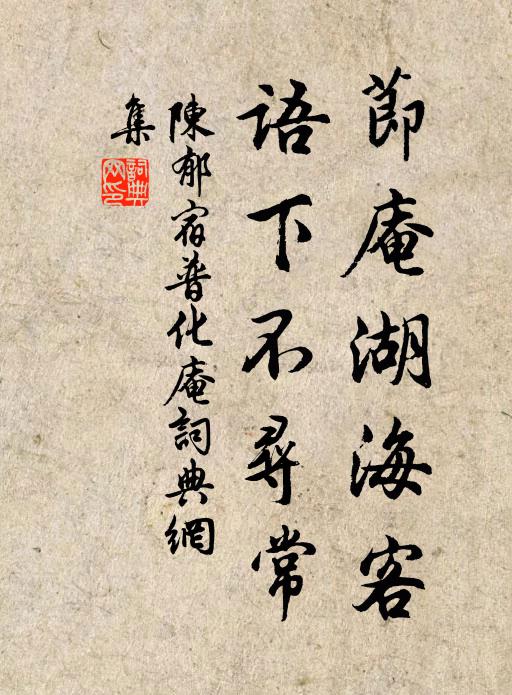 節庵湖海客
語下不尋常
陳郁宿普化庵詞典網
集
詞典網印